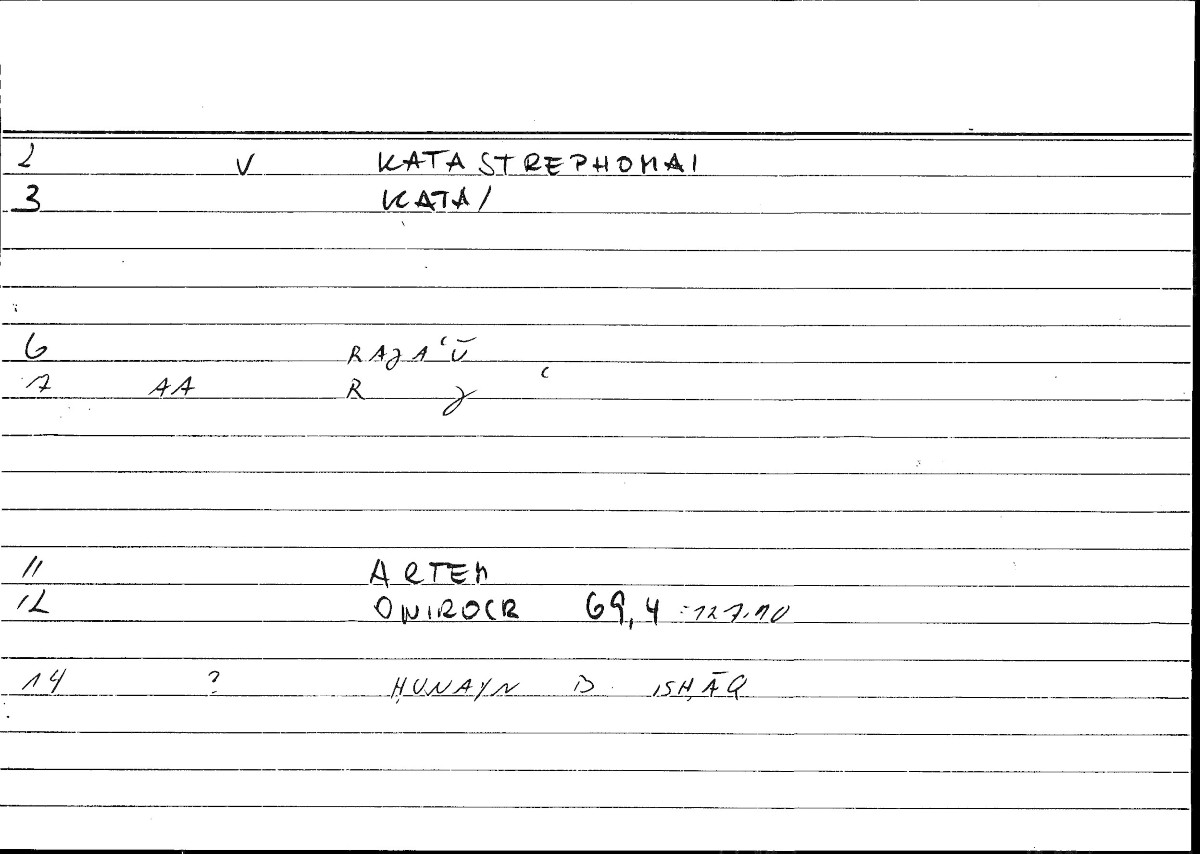 2 V KATASTREPHOMAI
3 KATA/
6 RAJAʿŪ
7 AA R J ʿ
11 ARTEM
12 ONIROCR 69,4 :127.10
14 ? ḤUNAYN B ISḤĀQ